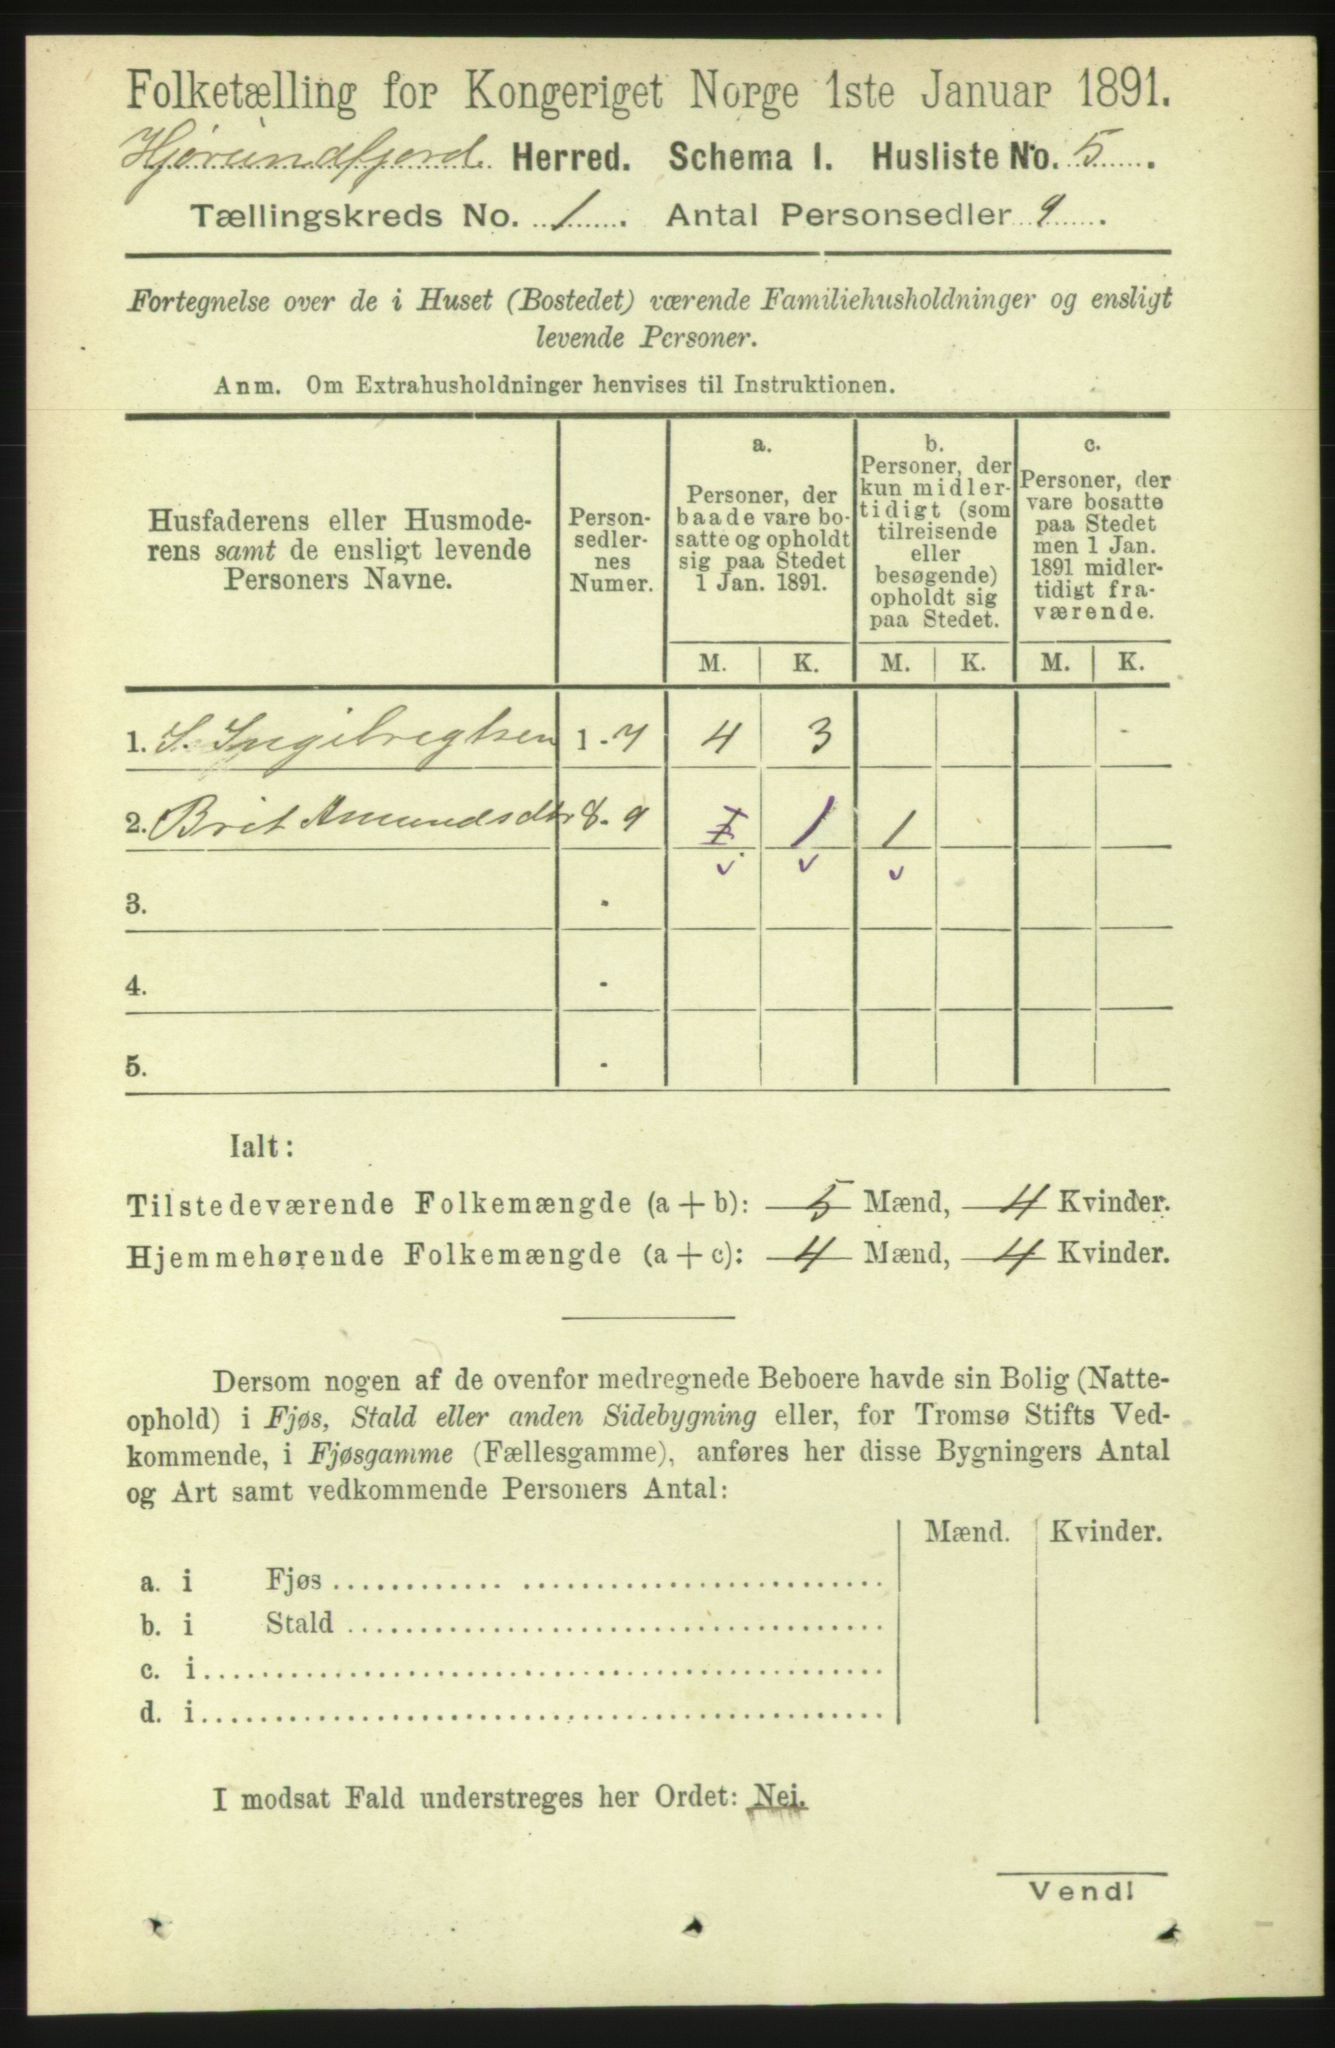 Folketælling for Kongeriget Norge 1ste Januar 1891.
Hjørundfjord Herred. Schema I. Husliste No. 5.
Tællingskreds No. 1. Antal Personsedler 9.
Fortegnelse over de i Huset (Bostedet) værende Familiehusholdninger og ensligt
levende Personer.
Anm. Om Extrahusholdninger henvises til Instruktionen.
Husfaderens eller Husmode-
rens samt de ensligt levende
Personers Navne.
Person-
sedler-
nes
Numer.
a.
Personer, der
baade vare bo-
satte og opholdt
sig paa Stedet
1 Jan. 1891.
b.
Personer, der
kun midler-
tidigt (som
tilreisende
eller
besøgende)
opholdt sig
paa Stedet.
c.
Personer, der
vare bosatte
paa Stedet
men 1 Jan.
1891 midler-
tidigt fra-
værende.
M. K. M. K. M. K.
1. S. Ingebregtsen 1-7 4 3
2. Brit Amundsdtr 8-9 1 1 1
3. -
4. -
5. -
Ialt:
Tilstedeværende Folkemængde (a + b): 5 Mænd, 4 Kvinder.
Hjemmehørende Folkemængde (a + c): 4 Mænd, 4 Kvinder.
Dersom nogen af de ovenfor medregnede Beboere havde sin Bolig (Natte-
ophold) i Fjøs, Stald eller anden Sidebygning eller, for Tromsø Stifts Ved-
kommende, i Fjøsgamme (Fællesgamme), anføres her disse Bygningers Antal
og Art samt vedkommende Personers Antal:
Mænd. Kvinder.
a. i Fjøs
b. i Stald
c. i
d. i
I modsat Fald understreges her Ordet: Nei.
Vend!